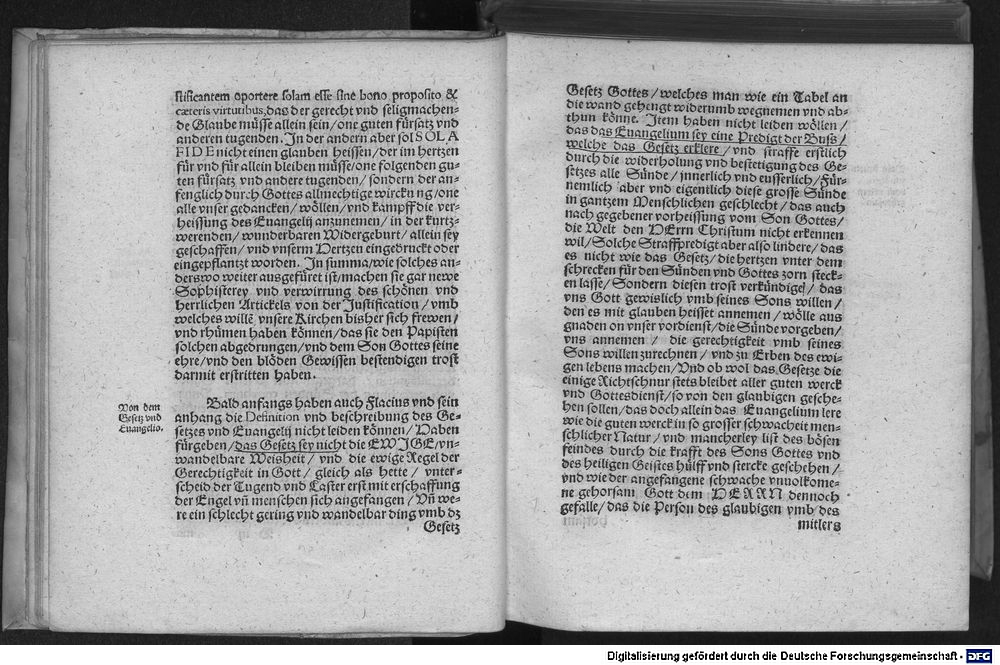 stificantem oportere solam esse sine bono proposito &
cæteris virtutibus, das der gerecht vnd seligmachen-
de Glaube müsse allein sein / one guten fürsatz vnd
anderen tugenden. In der andern aber sol SOLA
FIDE nicht einen glauben heissen / der im hertzen
für vnd für allein bleiben müsse / one folgenden gu-
ten fürsatz vnd andere tugenden / sondern der an-
fenglich durch Gottes allmechtige wirckung / one
alle vnser gedancken / wöllen / vnd kampff die ver-
heissung des Euangelij anzunemen / in der kurtz-
werenden / wunderbaren Widergeburt / allein sey
geschaffen / vnd vnserm Hertzen eingedruckt oder
eingepflantzt worden. In summa / wie solches an-
derswo weiter ausgefüret ist / machen sie gar newe
Sophisterey vnd verwirrung des schönen vnd
herrlichen Artickels von der Justification / vmb
welches willē vnsere Kirchen bisher sich frewen /
vnd rhümen haben können / das sie den Papisten
solchen abgedrungen / vnd dem Son Gottes seine
ehre / vnd den blöden Gewissen bestendigen trost
darmit erstritten haben.
Von dem
Gesetz vnd
Euangelio.
Bald anfangs haben auch Flacius vnd sein
anhang die Definition vnd beschreibung des Ge-
setzes vnd Euangelij nicht leiden können / Haben
fürgeben / das Gesetz sey nicht die EWIGE / vn-
wandelbare Weisheit / vnd die ewige Regel der
Gerechtigkeit in Gott / gleich als hette / vnter-
scheid der Tugend vnd Laster erst mit erschaffung
der Engel vn̄ menschen sich angefangen / Vn̄ we-
re ein schlecht gering vnd wandelbar ding vmb dz
Gesetz
Gesetz Gottes / welches man wie ein Tabel an
die wand gehengt widerumb wegnemen vnd ab-
thun könne. Item haben nicht leiden wöllen /
das das Euangelium sey eine Predigt der Buss /
welche das Gesetz erklere / vnd straffe erstlich
durch die widerholung vnd bestetigung des Ge-
setzes alle Sünde / innerlich vnd eusserlich / Für-
nemlich aber vnd eigentlich diese grosse Sünde
in gantzem Menschlichen geschlecht / das auch
nach gegebener vorheissung vom Son Gottes /
die Welt den HErrn Christum nicht erkennen
wil / Solche Straffpredigt aber also lindere / das
es nicht wie das Gesetz / die hertzen vnter dem
schrecken für den Sünden vnd Gottes zorn steck-
en lasse / Sondern diesen trost verkündige / das
vns Gott gewislich vmb seines Sons willen /
den es mit glauben heisset annemen / wölle aus
gnaden on vnser vordienst / die Sünde vorgeben /
vns annemen / die gerechtigkeit vmb seines
Sons willen zurechnen / vnd zu Erben des ewi-
gen lebens machen / Vnd ob wol das Gesetze die
einige Richtschnur stets bleibet aller guten werck
vnd Gottesdienst / so von den glaubigen gesche-
hen sollen / das doch allein das Euangelium lere
wie die guten werck in so grosser schwacheit men-
schlicher Natur / vnd mancherley list des bösen
feindes durch die krafft des Sons Gottes vnd
des heiligen Geistes hülff vnd stercke geschehen /
vnd wie der angefangene schwache vnuolkome-
ne gehorsam Gott dem HERRN dennoch
gefalle / das die Person des glaubigen vmb des
mitlers
Digitalisierung gefördert durch die Deutsche Forschungsgemeinschaft - DFG